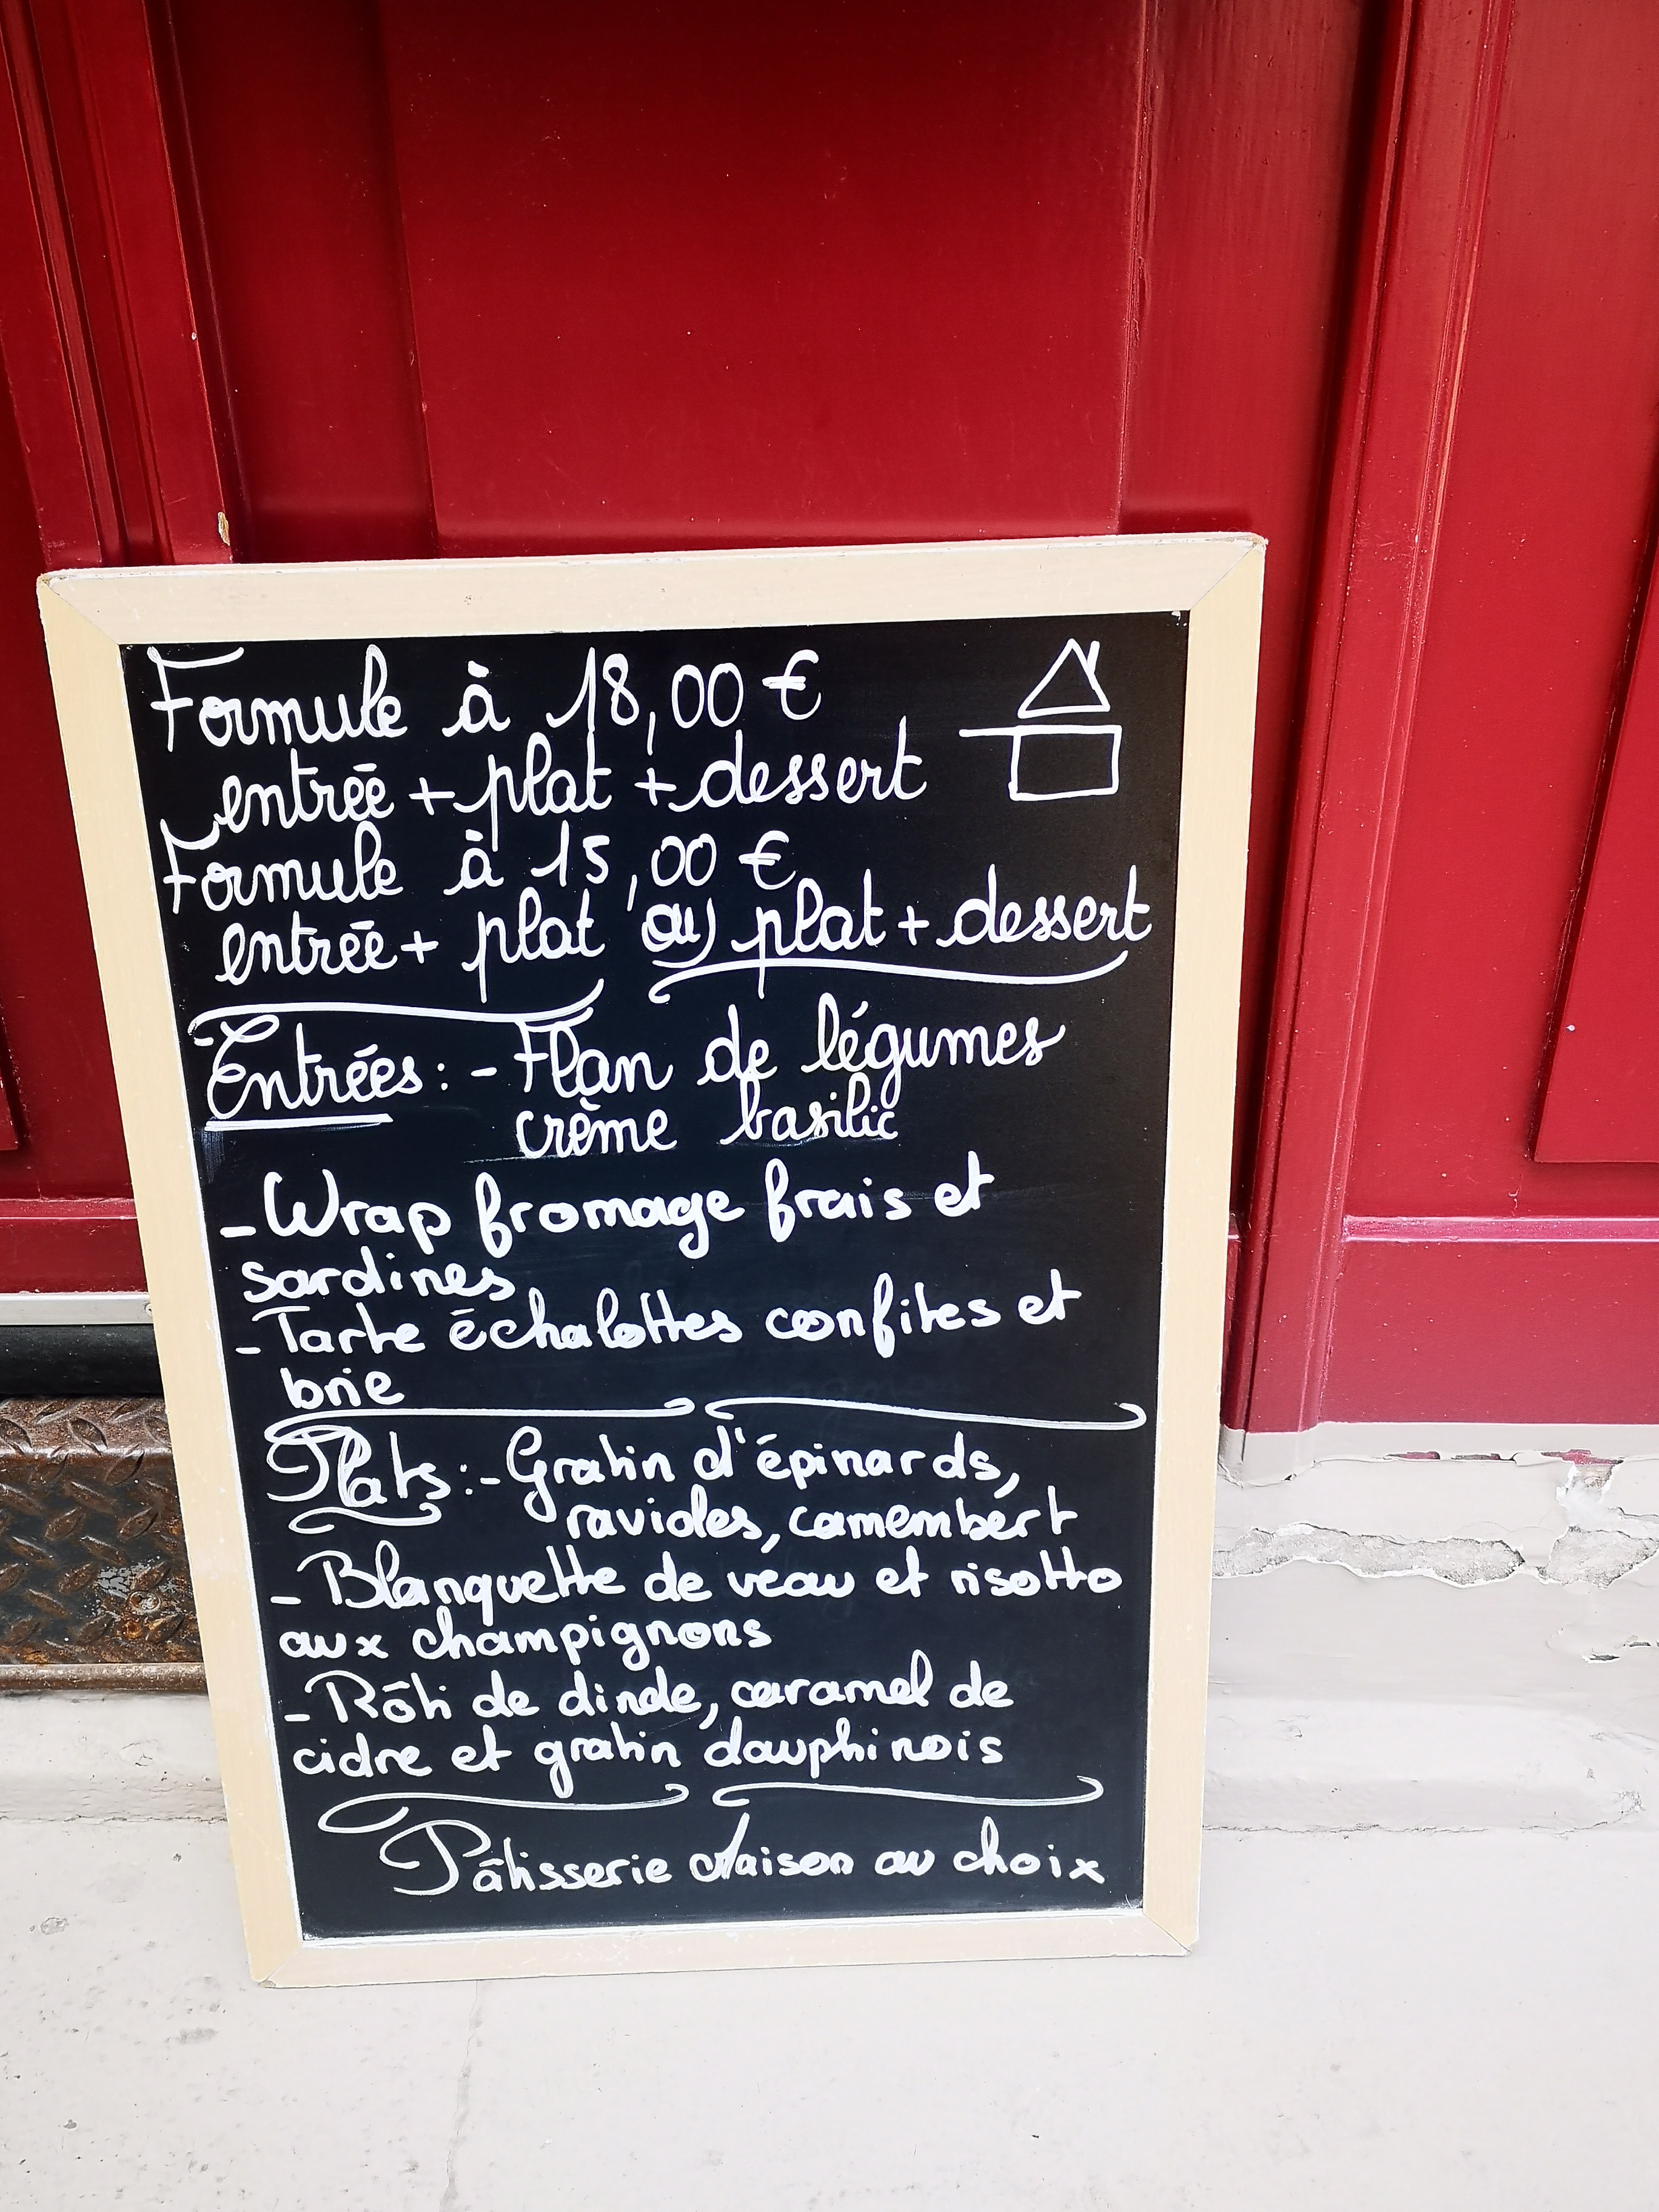 Formule à 18,00 €
entrée + plat + dessert
Formule à 15,00 €
entrée + plat ou plat + dessert
Entrées : - Flan de légumes
crème basilic
- Wrap fromage frais et
sardines
- Tarte échalottes confites et
brie
Plats : - Gratin d'épinards,
ravioles, camembert
- Blanquette de veau et risotto
aux champignons
- Rôti de dinde, caramel de
cidre et gratin dauphinois
Pâtisserie Maison au choix